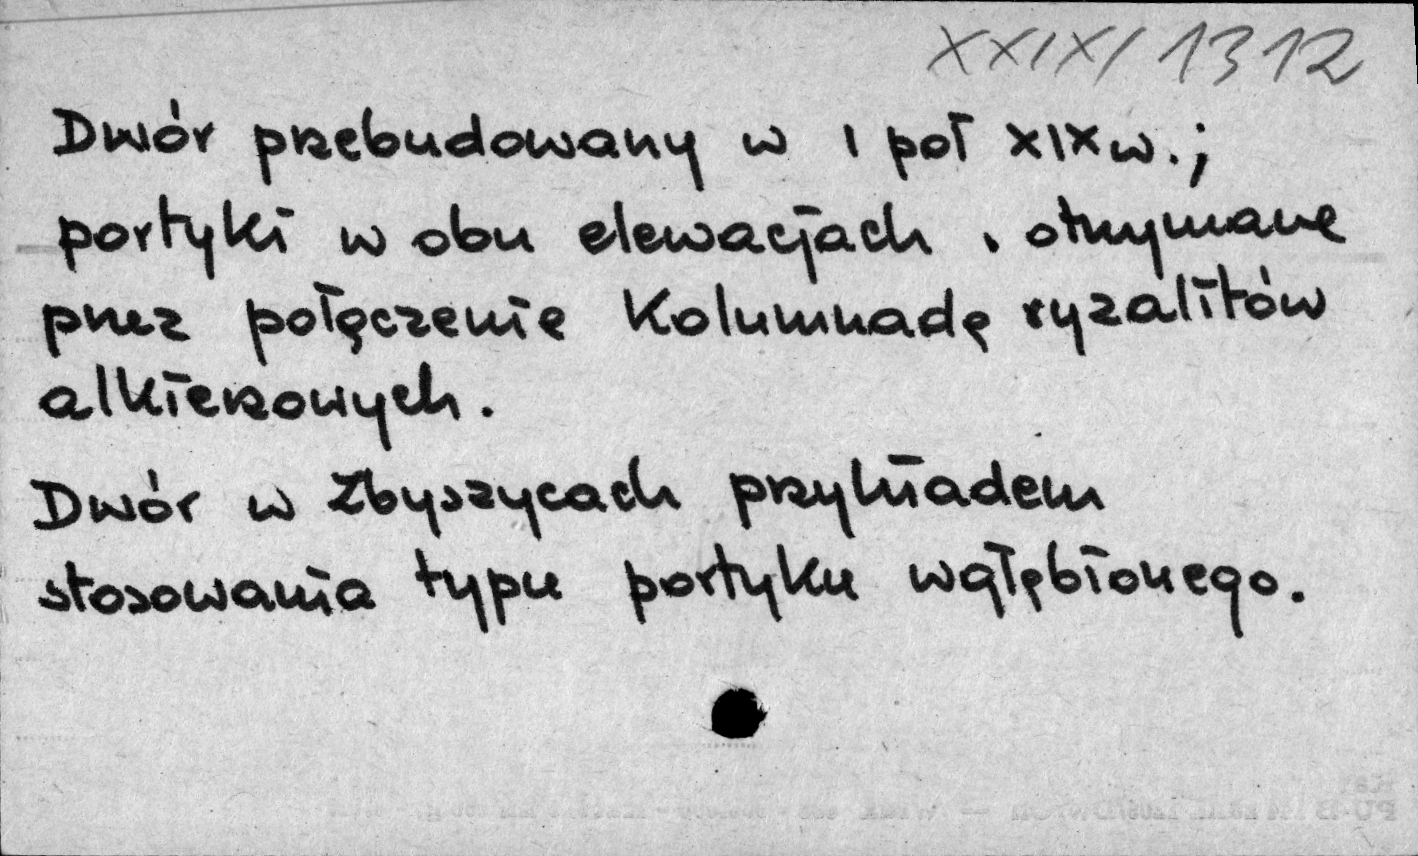 XXIX/1312
Dwór przebudowany w I poł XIX w.;
portyki w obu elewacjach, otrzymane
przez połączenie kolumnadą ryzalitów
alkierzowych.
Dwór w Zbyszycach przykładem
stosowania typu portyku wgłębionego.